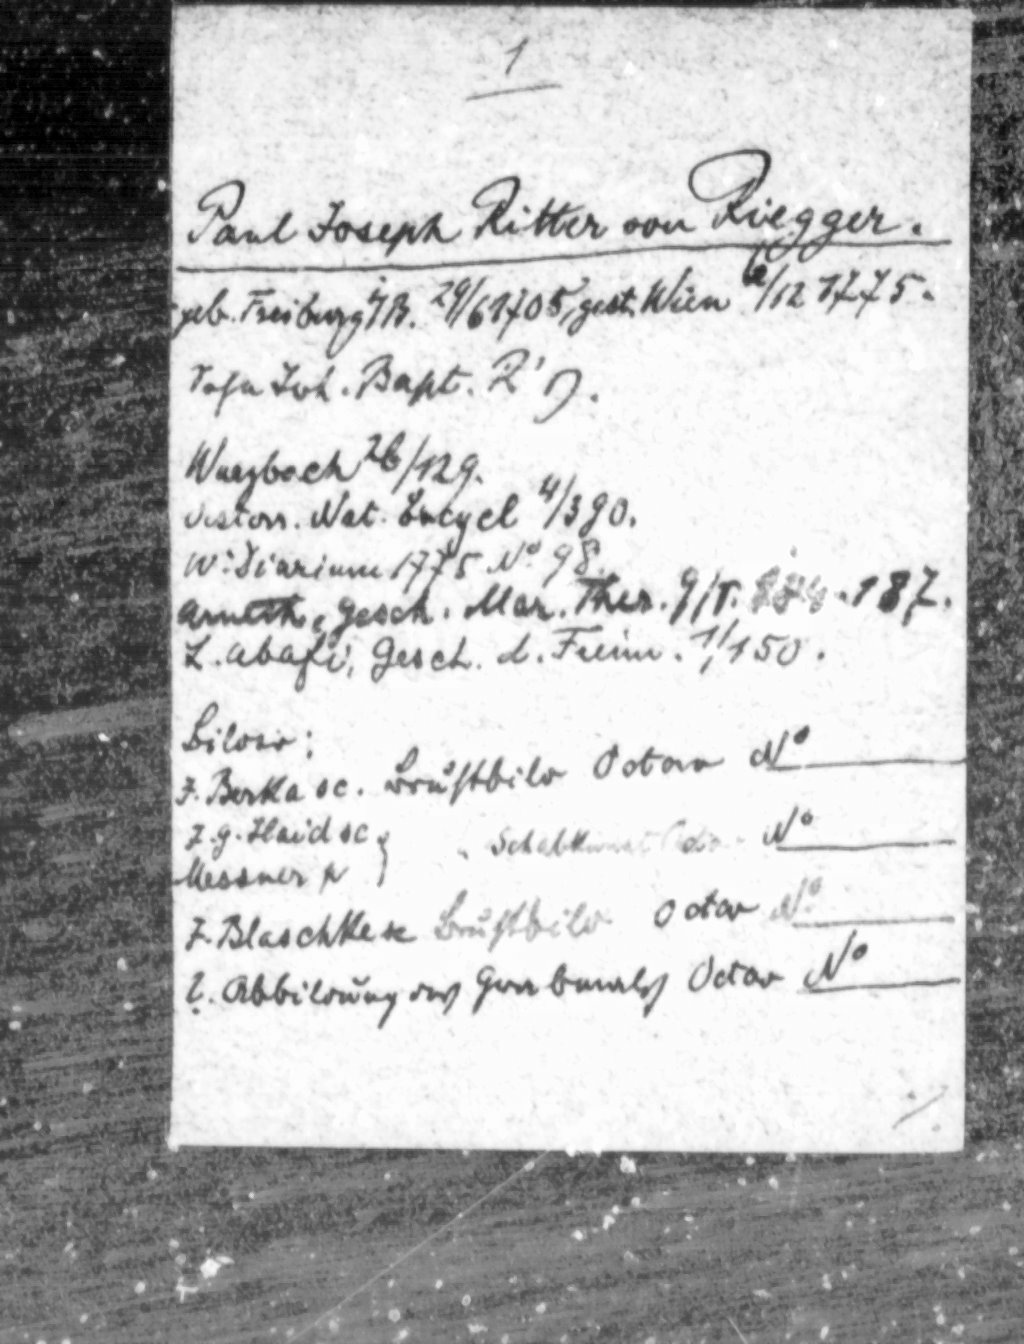 1
Paul Joseph Ritter von Riegger.
geb. Freiburg i/B. 29/6 1705, gest. Wien 2/12 1775.
Joh. Bapt. R's.
Wurzbach 26/129.
Oestorr. Nat. Encycl 4/390.
W. Diarium 1775 No 98.
Arneth, Gesch. Mar. Ther. 9/ 187.
L. Abafi, Gesch. d. Freim. 1/150.
Bilder:
J. Berka sc. Brustbild Octav No
J. G. Haid sc } Schabkunst No
Messmer p
J. Blaschke sc Brustbild Octav No
Abbildung des Grabmals Octav No